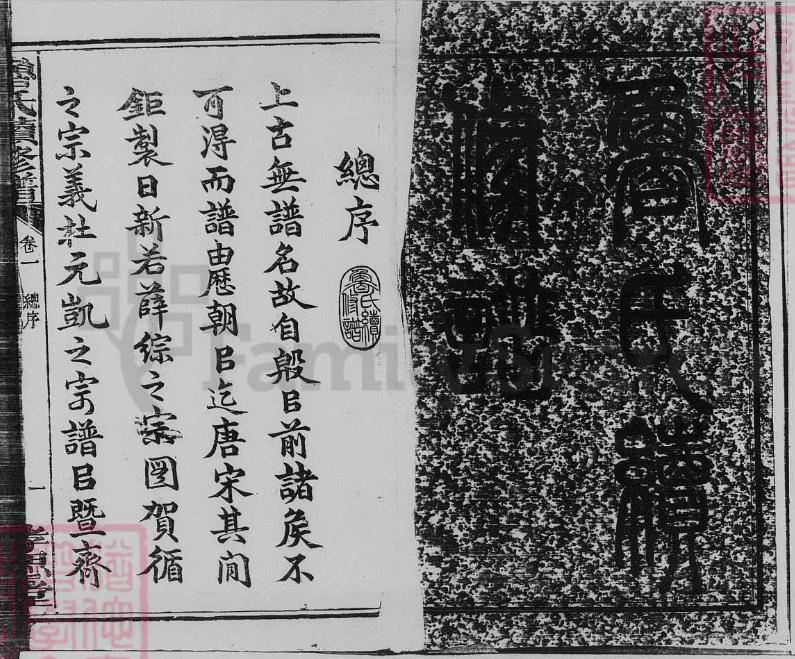 氏續
修譜
總序
上古無譜名故自殷㠯前諸矦不
可淂而譜由歷朝㠯迄唐宋其間
鉅製日新若薛綜之宗圖賀循
之宗義杜元凱之宗譜㠯暨齊
氏續修譜 卷一 總序 一 孝思堂
FamilySearch